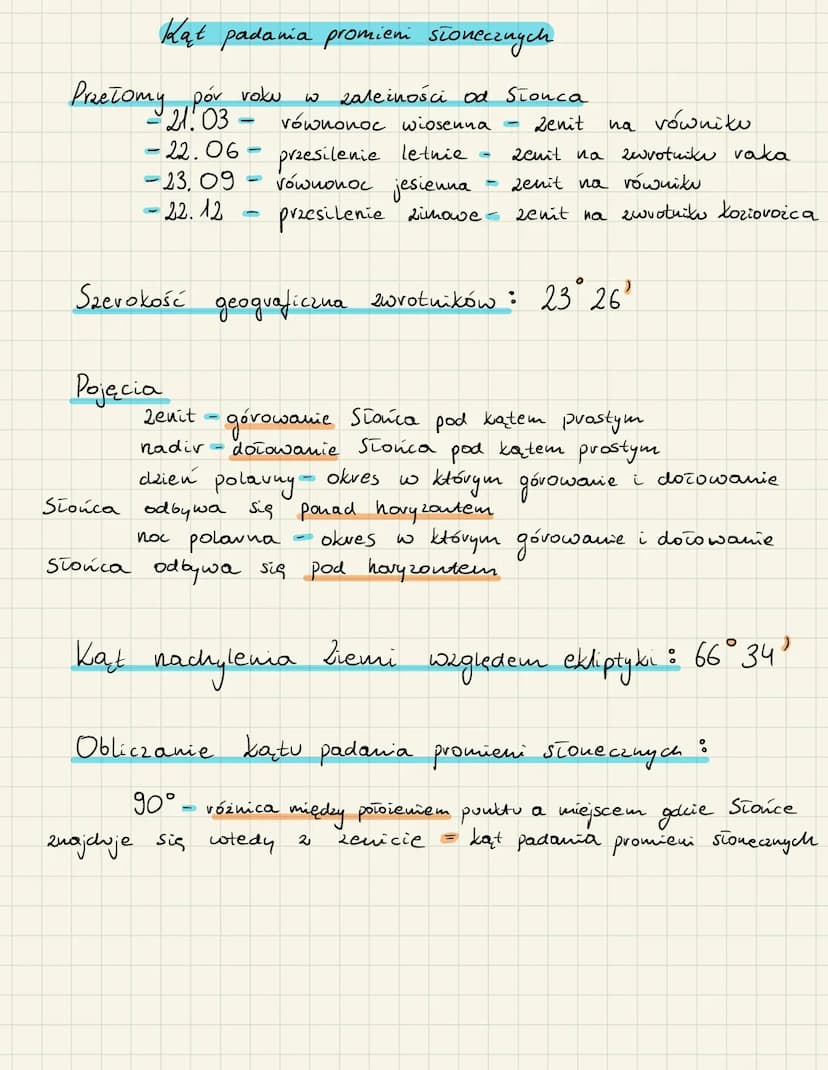 Kąt padania promieni słonecznych
Przełomy pór roku w zależności od Słońca
- 21.03 - równonoc wiosenna - zenit na równiku
- 22.06 - przesilenie letnie - zenit na zwrotniku raka
- 23.09 - równonoc jesienna - zenit na równiku
- 22.12 - przesilenie zimowe - zenit na zwrotniku koziorożca
Szerokość geograficzna zwrotników: 23°26'
Pojęcia
zenit - górowanie Słońca pod kątem prostym
nadir - dołowanie Słońca pod kątem prostym
dzień polarny - okres w którym górowanie i dołowanie
Słońca odbywa się ponad horyzontem
noc polarna - okres w którym górowanie i dołowanie
Słońca odbywa się pod horyzontem
Kąt nachylenia Ziemi względem ekliptyki: 66°34'
Obliczanie kątu padania promieni słonecznych:
90° - różnica między położeniem punktu a miejscem gdzie Słońce
znajduje się wtedy z zenicie = kąt padania promieni słonecznych